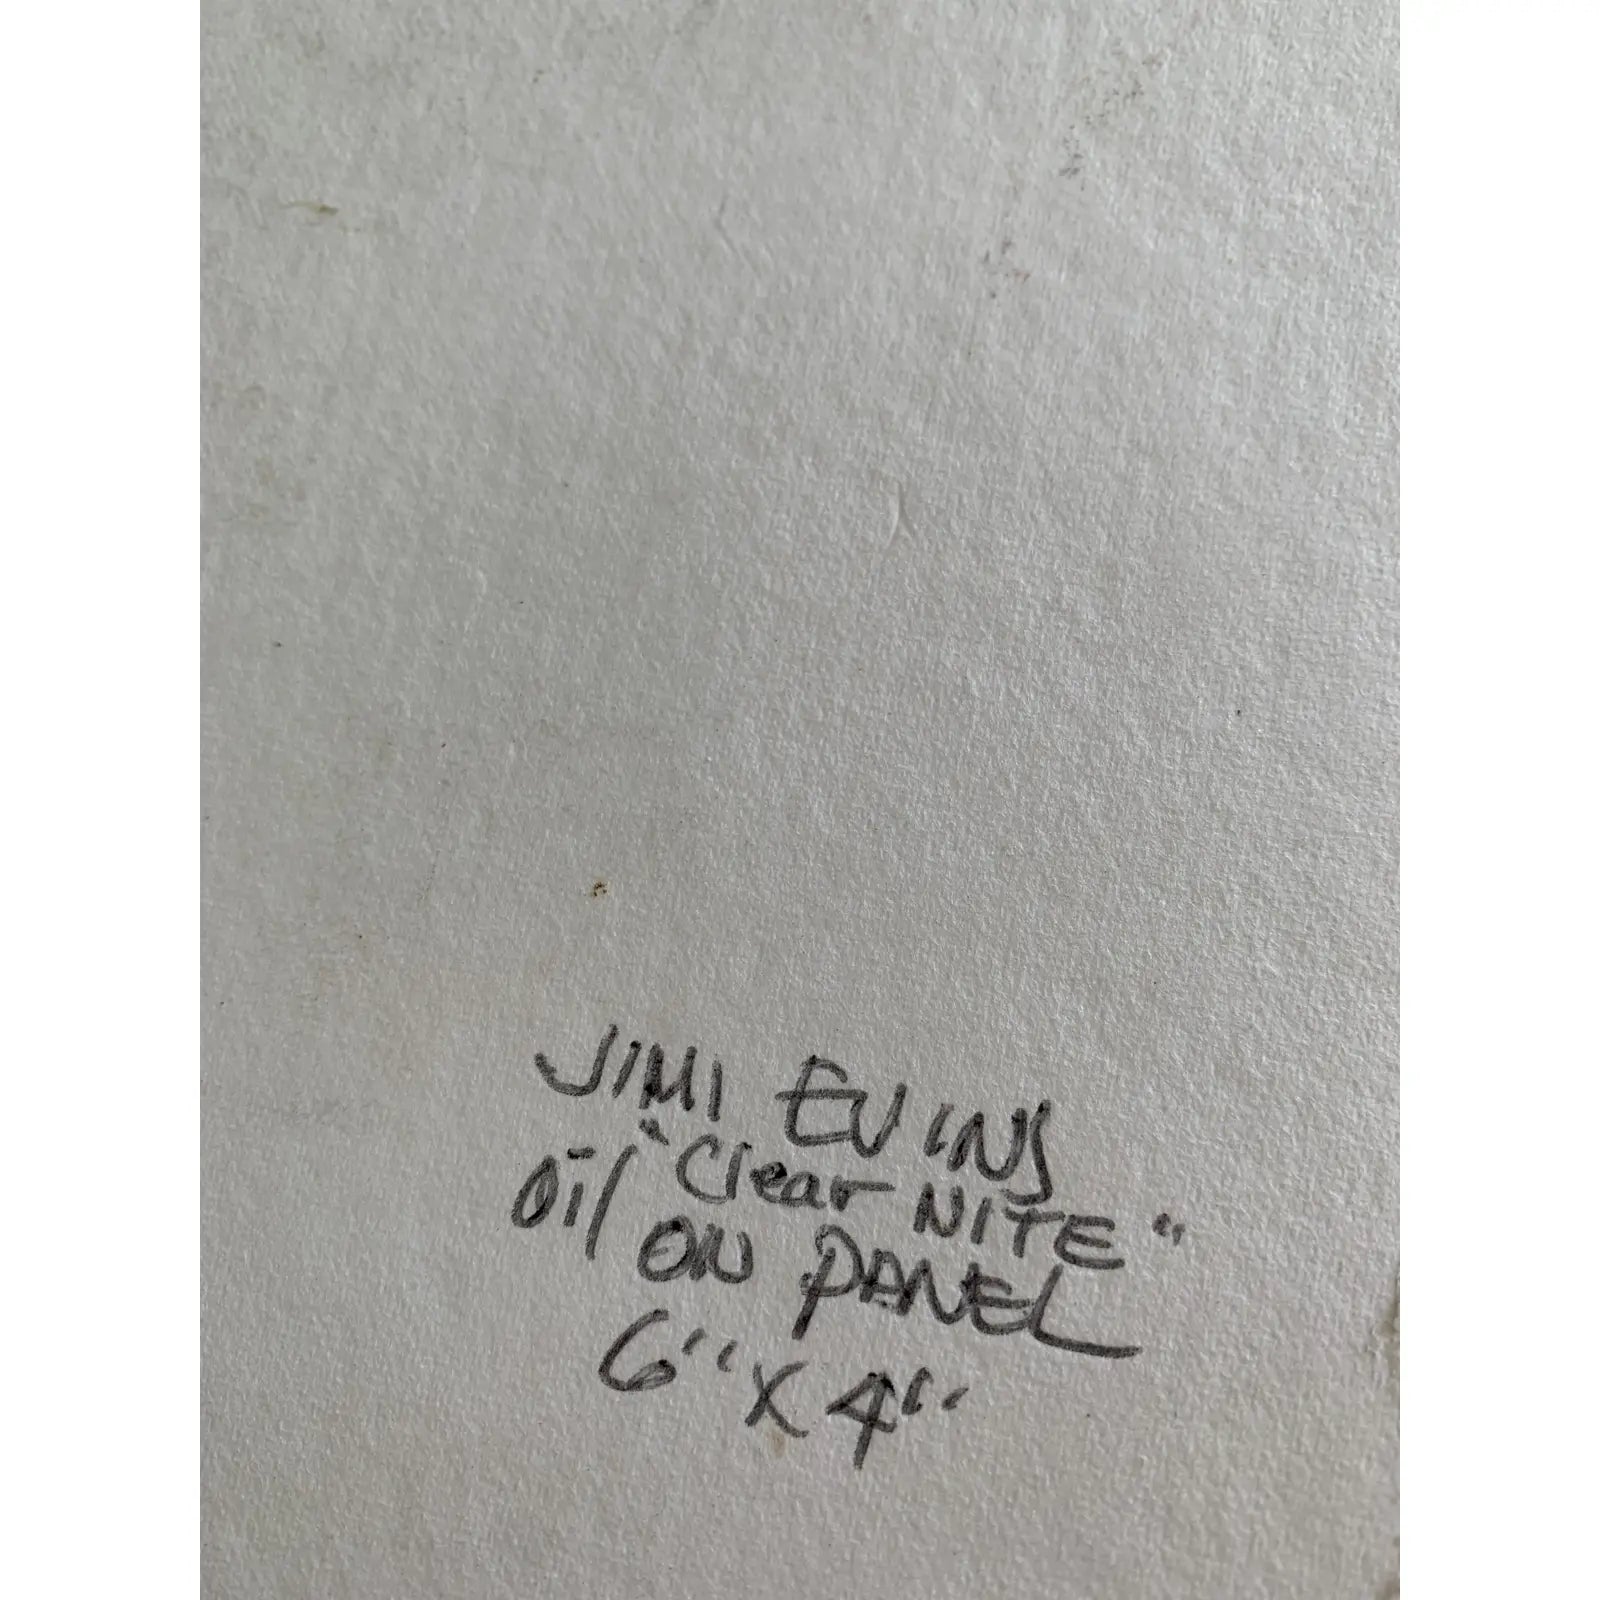 JIMI EVINS
"Clear NITE"
Oil ON PANEL
6" X 4"